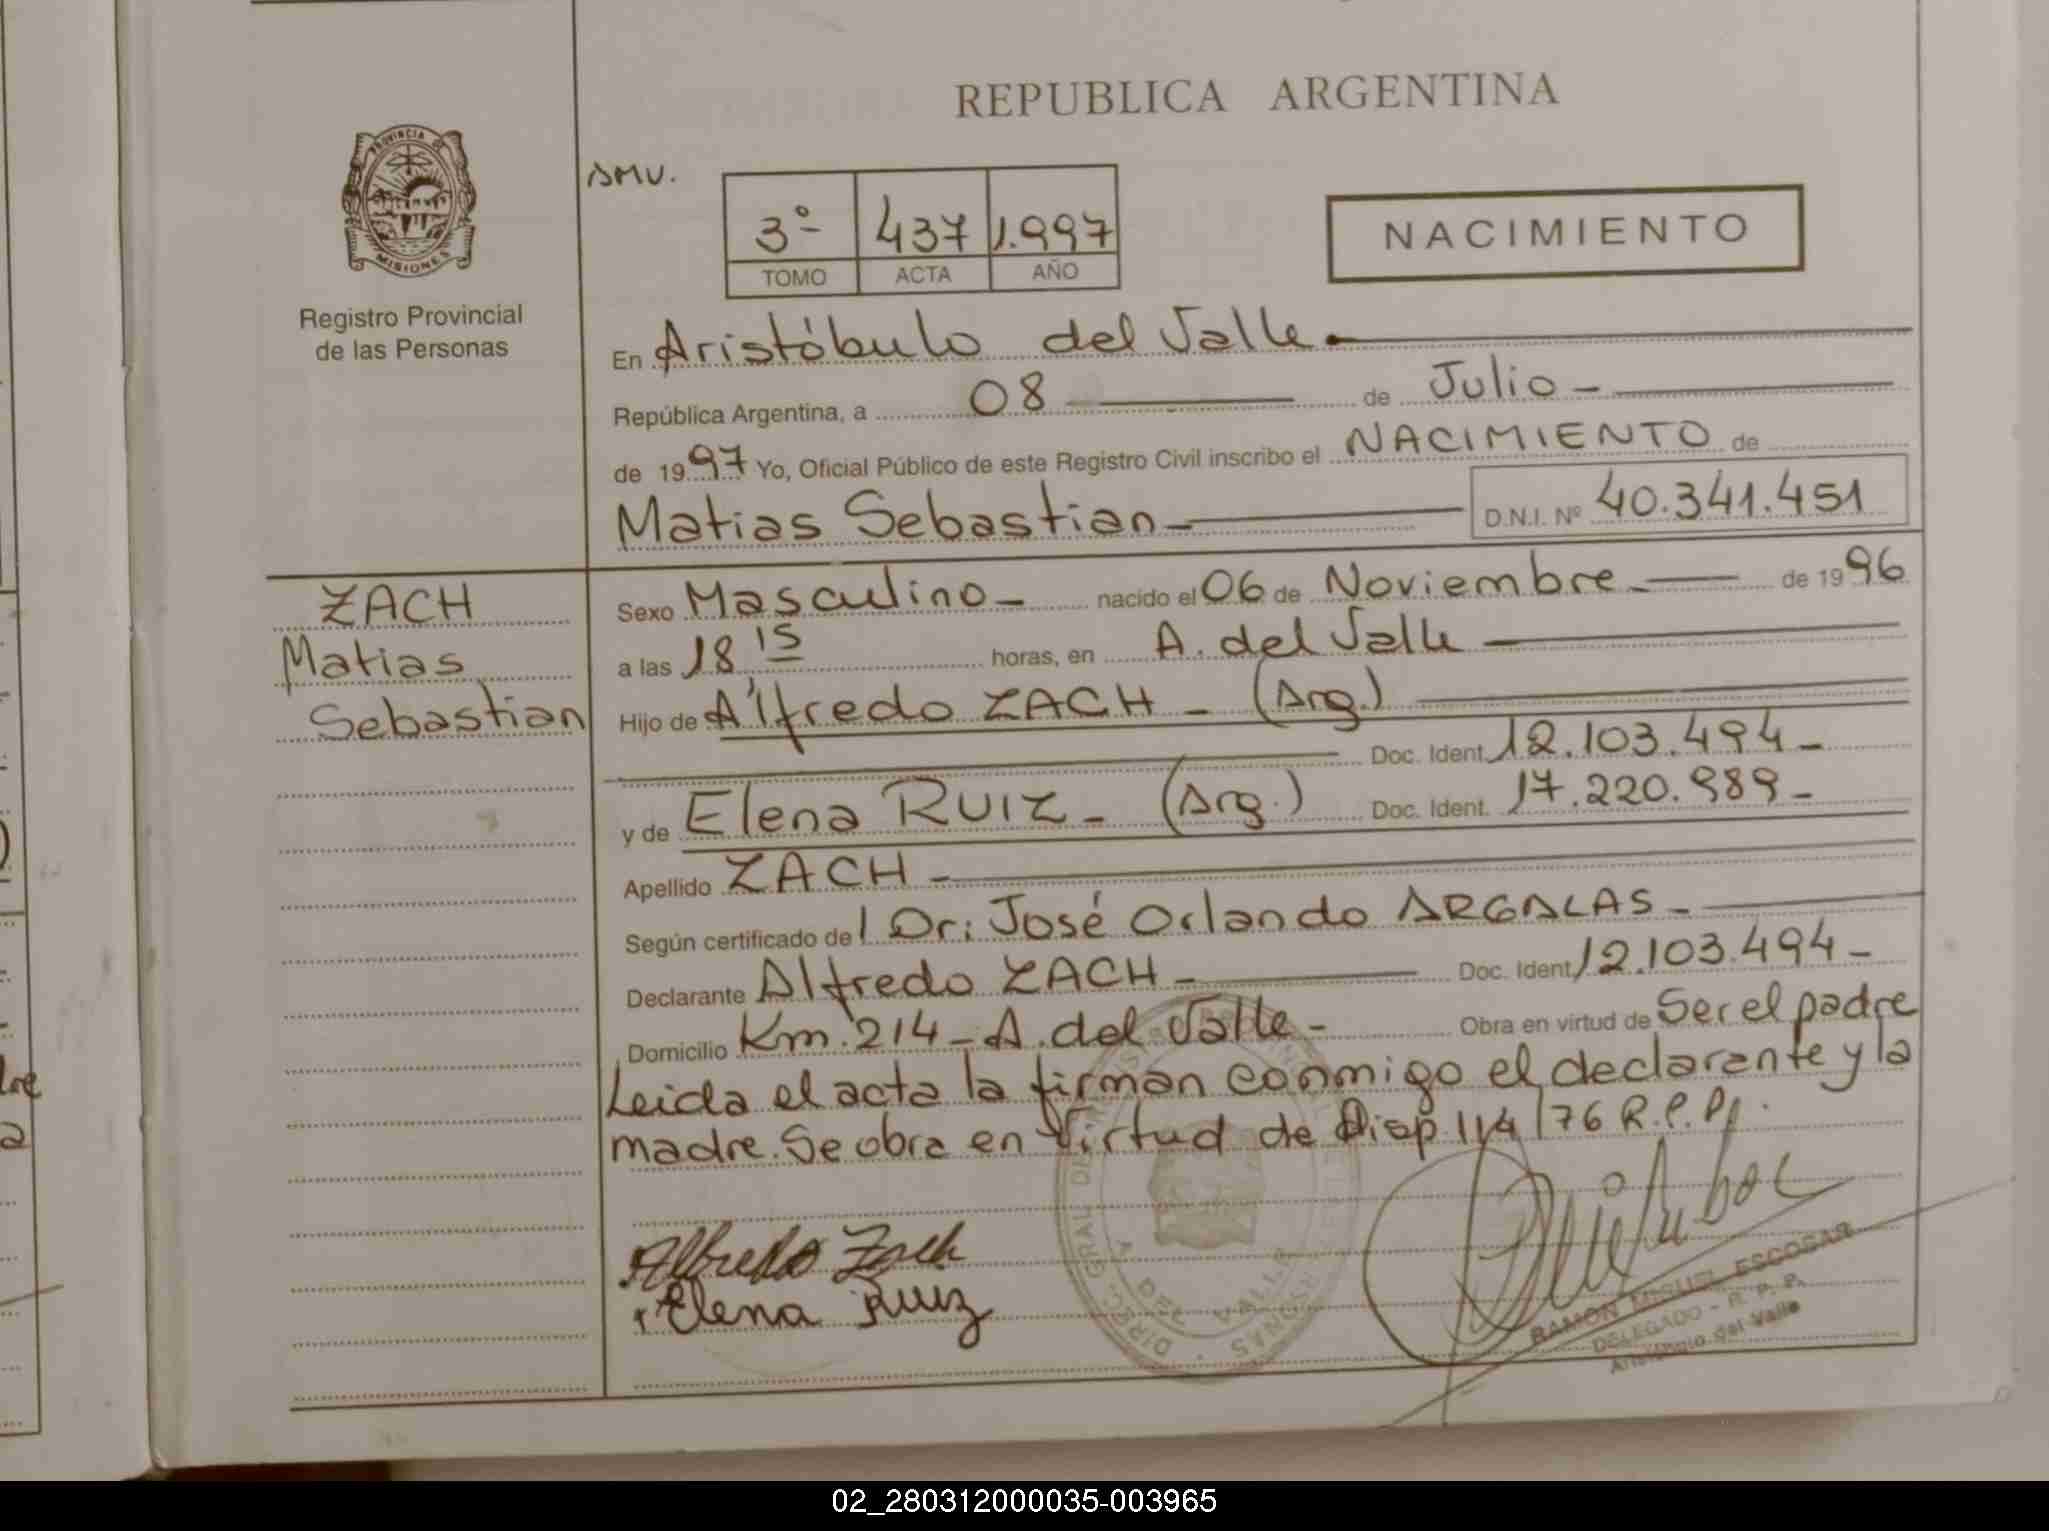 REPUBLICA ARGENTINA
PROVINCIA DE
MISIONES
Registro Provincial
de las Personas
SMV.
3º 437 1.997
TOMO ACTA AÑO
NACIMIENTO
En Aristóbulo del Valle
República Argentina, a 08 de Julio
de 1997 Yo, Oficial Público de este Registro Civil inscribo el NACIMIENTO de
Matias Sebastian D.N.I. Nº 40.341.451
ZACH
Matias
Sebastian
Sexo Masculino nacido el 06 de Noviembre de 1996
a las 18 15 horas, en A. del Valle
Hijo de Alfredo ZACH - (Arg.)
Doc. Ident. 12.103.494
y de Elena RUIZ - (Arg.) Doc. Ident. 17.220.989
Apellido ZACH
Según certificado del Dr: José Orlando ARGALAS
Declarante Alfredo ZACH Doc. Ident. 12.103.494
Domicilio Km. 214 - A. del Valle - Obra en virtud de Ser el padre
Leida el acta la firman conmigo el declarante y la
madre. Se obra en Virtud de Disp 114/76 R.P.P.
Alfredo Zach
Elena Ruiz
RAMON MIGUEL ESCOBAR
DELEGADO - R. P. P.
Aristóbulo del Valle
02_280312000035-003965